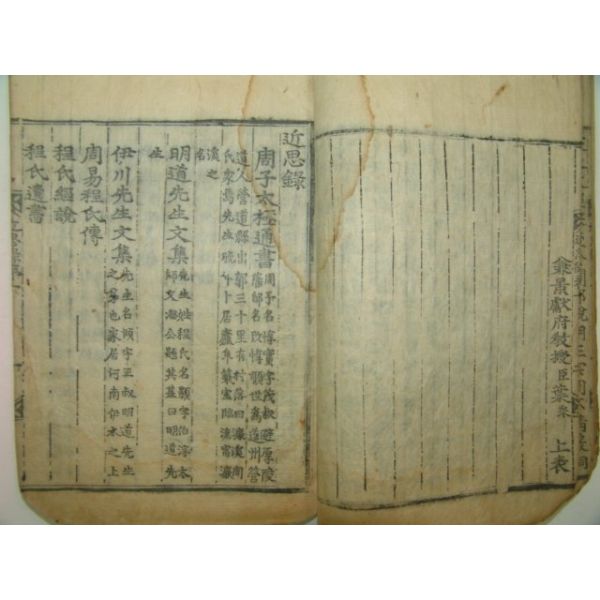 兼景獻府教授臣葉采 上表
近思錄
周子太極通書
周子名惇實字茂叔避厚陵
藩邸名改惇頤世為道州營
道人營道縣出郭三十里有村落曰濂溪周
氏家焉先生晚年卜居廬阜築室臨流寓濂
溪之
名
明道先生文集
先生姓程氏名顥字伯淳太
師文潞公題其墓曰明道先
生
伊川先生文集
先生名頤字正叔明道先生
之弟也家居河南伊水之上
周易程氏傳
程氏經說
程氏遺書